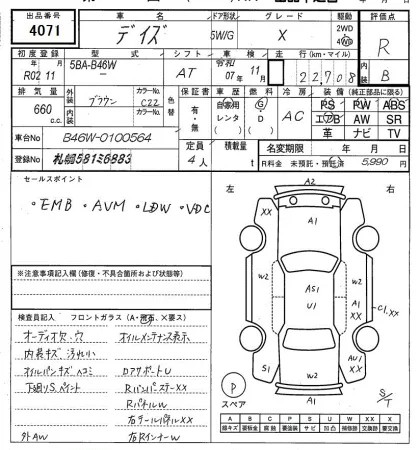 出品番号 車名 ドア形状 グレード 駆動 評価点
4071 デイズ 5W/G X 2WD 4WD R
初度登録 型式 シフト 車検 走行(km・マイル) 内
R02 11月 5BA-B46W AT 令和07年11月 22,708 B
排気量 外装 ブラウン カラーNo. C22 色替 保証書 車歴 燃料 冷房 装備(純正部品に限る)
660 c.c. 内装 カラーNo. 有・無 自家用 レンタ G D AC PS PW ABS
エアB AW SR
革 ナビ TV
車台No B46W-0100564 定員 4人 積載量 t
名変期限 年 月 日
登録No 札幌581ミ6883 R料金 未預託・預託済 5,990 円
セールスポイント
・EMB ・AVM ・LDW ・VDC
※注意事項記入欄(修復・不具合箇所および状態等)
検査員記入 フロントガラス(A・飛石、×要ス)
オーディオ欠、穴 オイルメンテナンス表示
内装キズ 汚れ
オイルパンキズ ヘコミ DアサポートU
下廻りS、ペイント RバンパステーXX
RパネルW
右テールパネルXX
外AW 右RインナーW
左 右
A2
XX A1
W2 A51 W2
U1 A1 XX C1.XX
S1 AU1 XX
A1
P
スペア
S/T
A B C P S U W X XX
線キズ 要板金 腐食 要塗装 サビ 凹凸 補修跡 交換跡 要交換